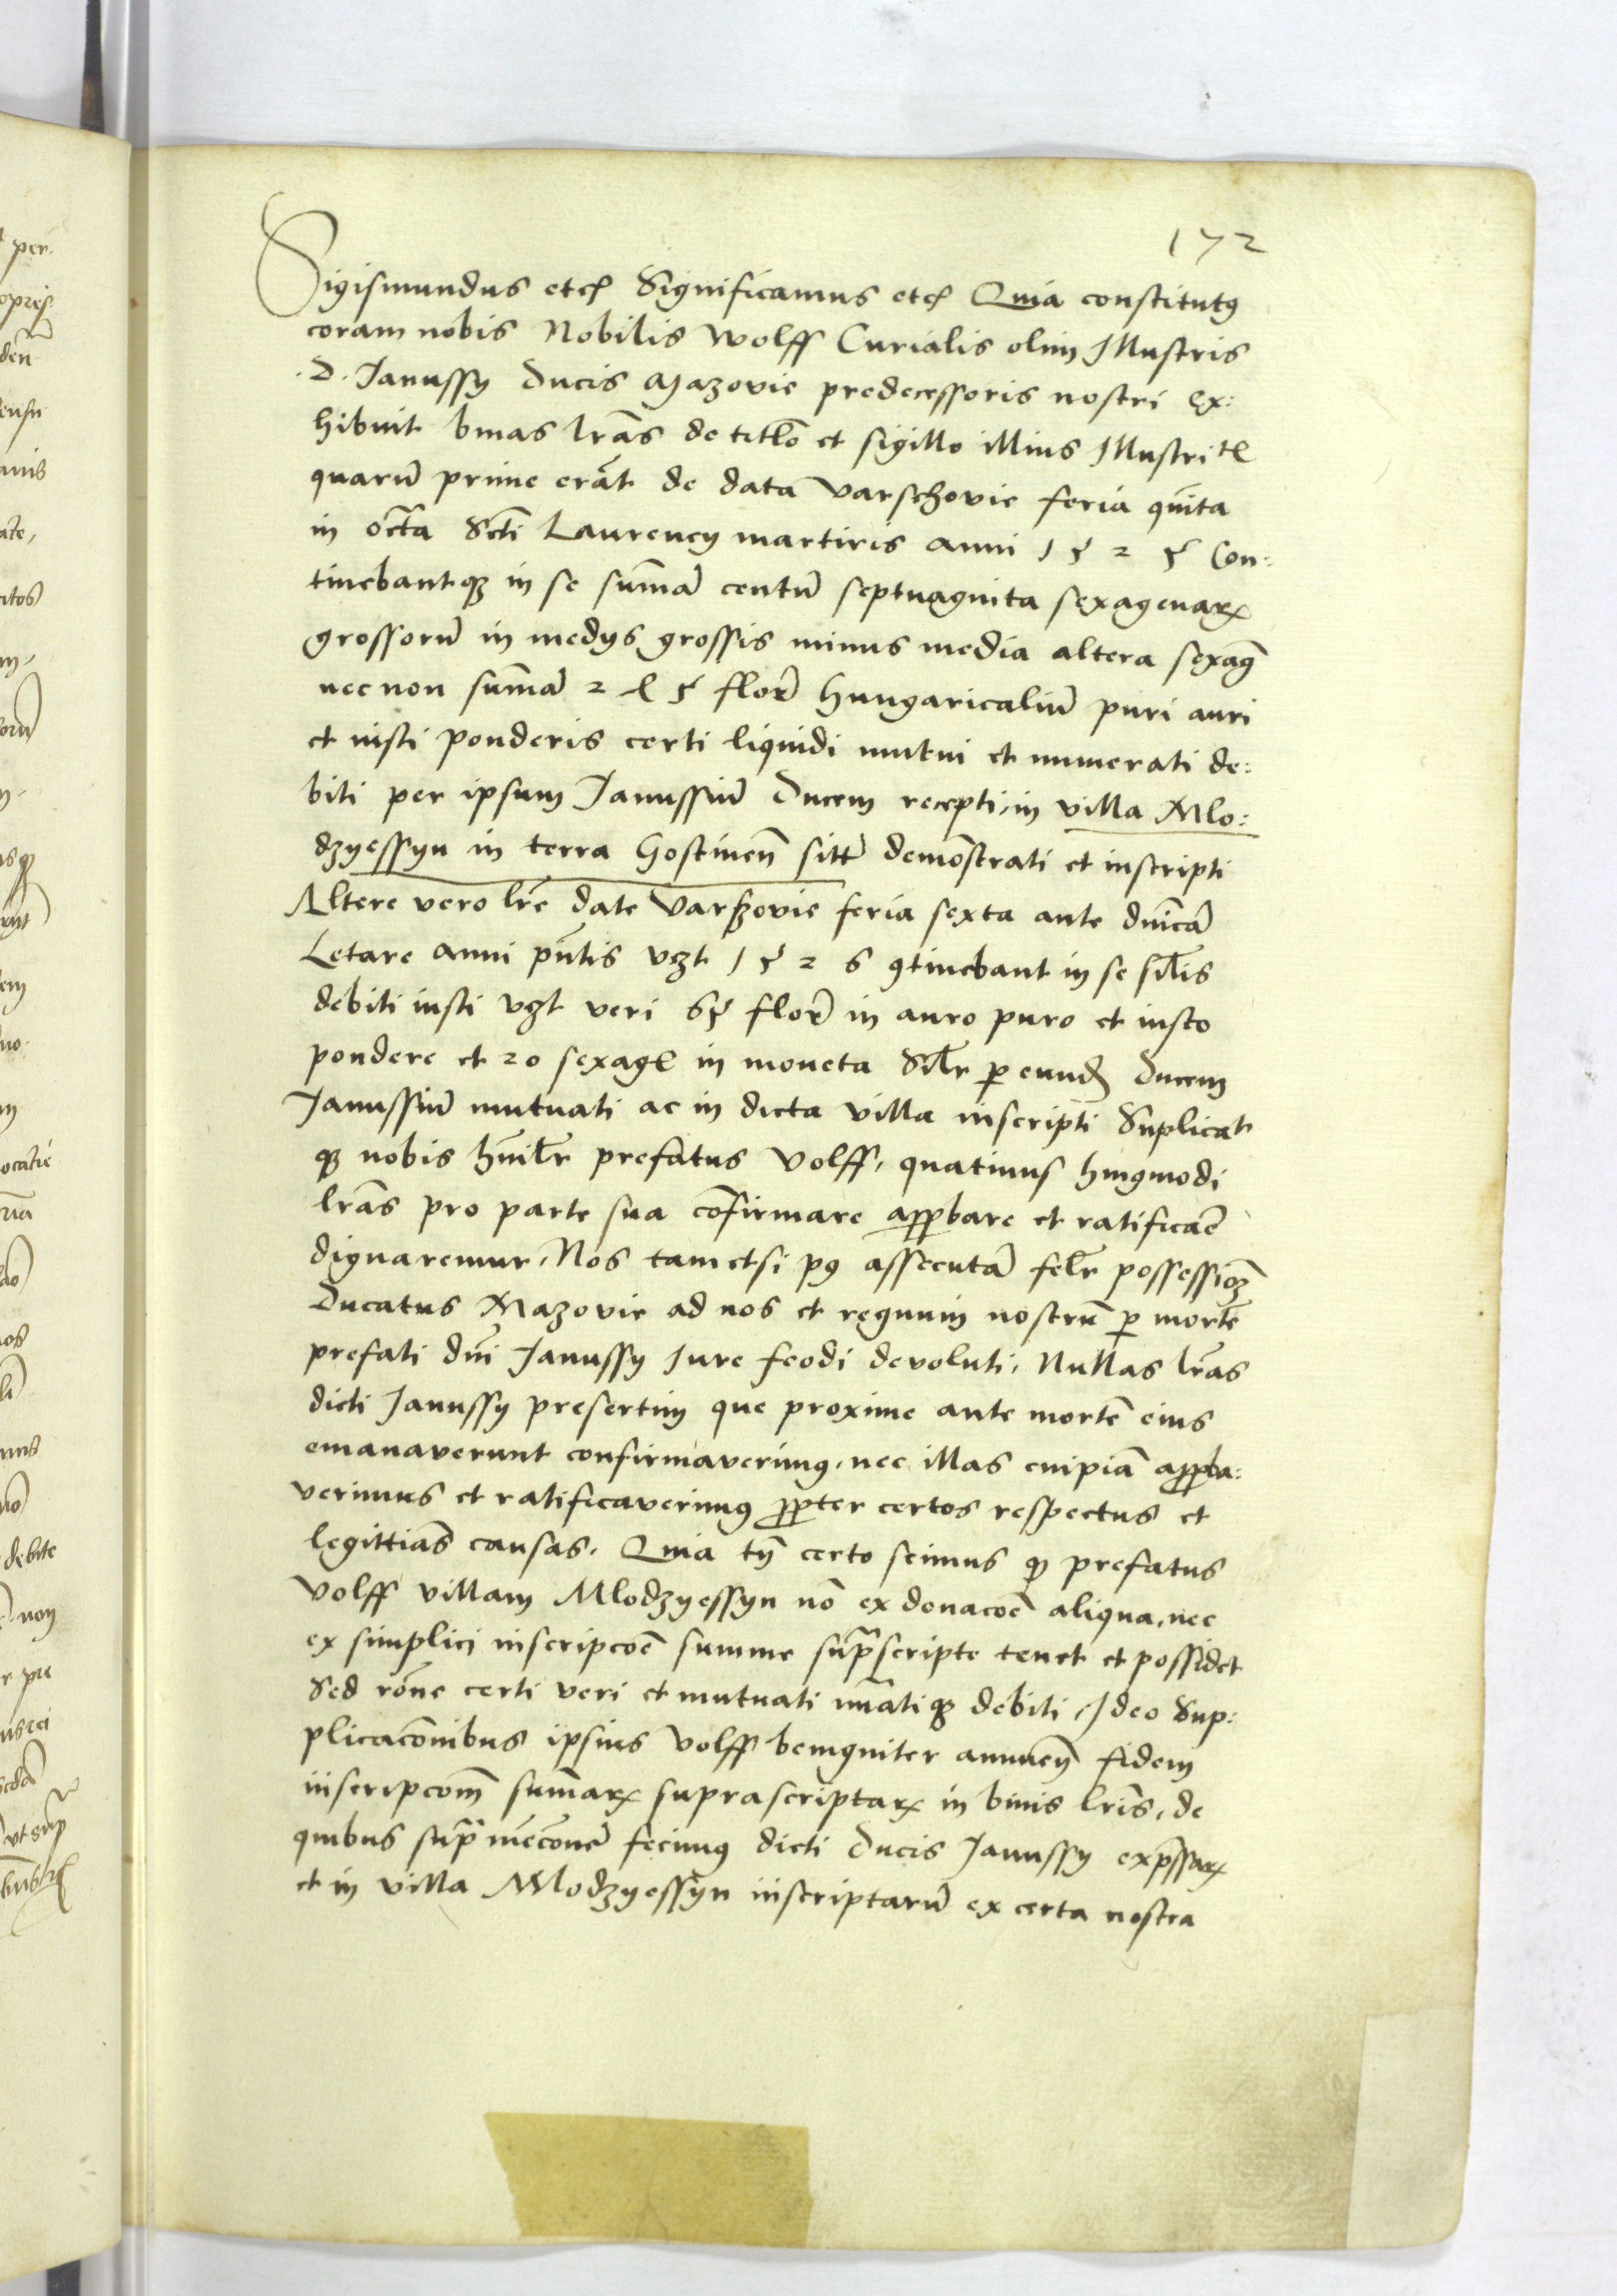 172
Sigismundus etc Significamus etc Quia constitutꝰ
coram nobis Nobilis Wolff Curialis olim Illustris
.D. Janussy Ducis Mazovie predecessoris nostri ex:
hibuit binas lr̄as de titl̄o et sigillo illius Illustri
quarū prime erāt de data Varschovie feria quīta
in oct̄a Sct̄i Laurency martiris anni 1525 Con:
tinebantqꝫ in se sum̄ā centū septuaginta sexagenaꝝ
grossorū in medys grossis minus media altera sexaḡ
nec non sum̄ā flor̄ hungaricaliū puri auri
et iusti ponderis certi liquidi mutui et numerati de:
biti per ipsum Janussiū Ducem recepti, in villa Mlo:
dzyessyn in terra Gostinen̄ sitt̄ demōstrati et inscripti
Altere vero lr̄e date Varschovie feria sexta ante dn̄icā
Letare anni pn̄tis vꝫt 1526 ꝯtinebant in se sil̄is
debiti iusti vꝫt veri 65 flor̄ in auro puro et iusto
pondere et 20 sexagꝭ in moneta Sil̄r ꝑ eundꝭ Ducem
Janussiū mutuati ac in dicta villa inscripti Suplicat
qꝫ nobis hūil̄r prefatus Volff, quatinus hmōi
lr̄as pro parte sua cōfirmare apꝓbare et ratificar̄e
dignaremur, Nos tametsi pꝰ assecutā fel̄r possessiōeꝫ
Ducatus Mazovie ad nos et regnum nostrū ꝑ mortē
prefati dn̄i Janussy Jure feodi devoluti, Nullas lr̄as
dicti Janussy presertim que proxime ante mortē eius
emanaverunt confirmaverimꝰ, nec illas cuipiā apꝓba:
verimus et ratificaverimꝰ ꝓpter certos respectus et
legittīas causas, Quia tn̄ certo scimus ꝙ prefatus
Volff villam Mlodzyessyn nō ex donacōe aliqua, nec
ex simplici inscripcōe summe sup̄rascripte tenet et possidet
Sed rōne certi veri et mutuati nūatiqꝫ debiti, Ideo Sup:
plicacōnibus ipsius Volff benigniter annuen̄ fidem
inscripcom̄ sum̄aꝝ suprascriptaꝝ in binis lr̄is, de
quibus sup̄ra mēcionē fecimꝰ dicti Ducis Janussy exp̄ssaꝝ
et in villa Mlodzyessyn inscriptarū ex certa nostra